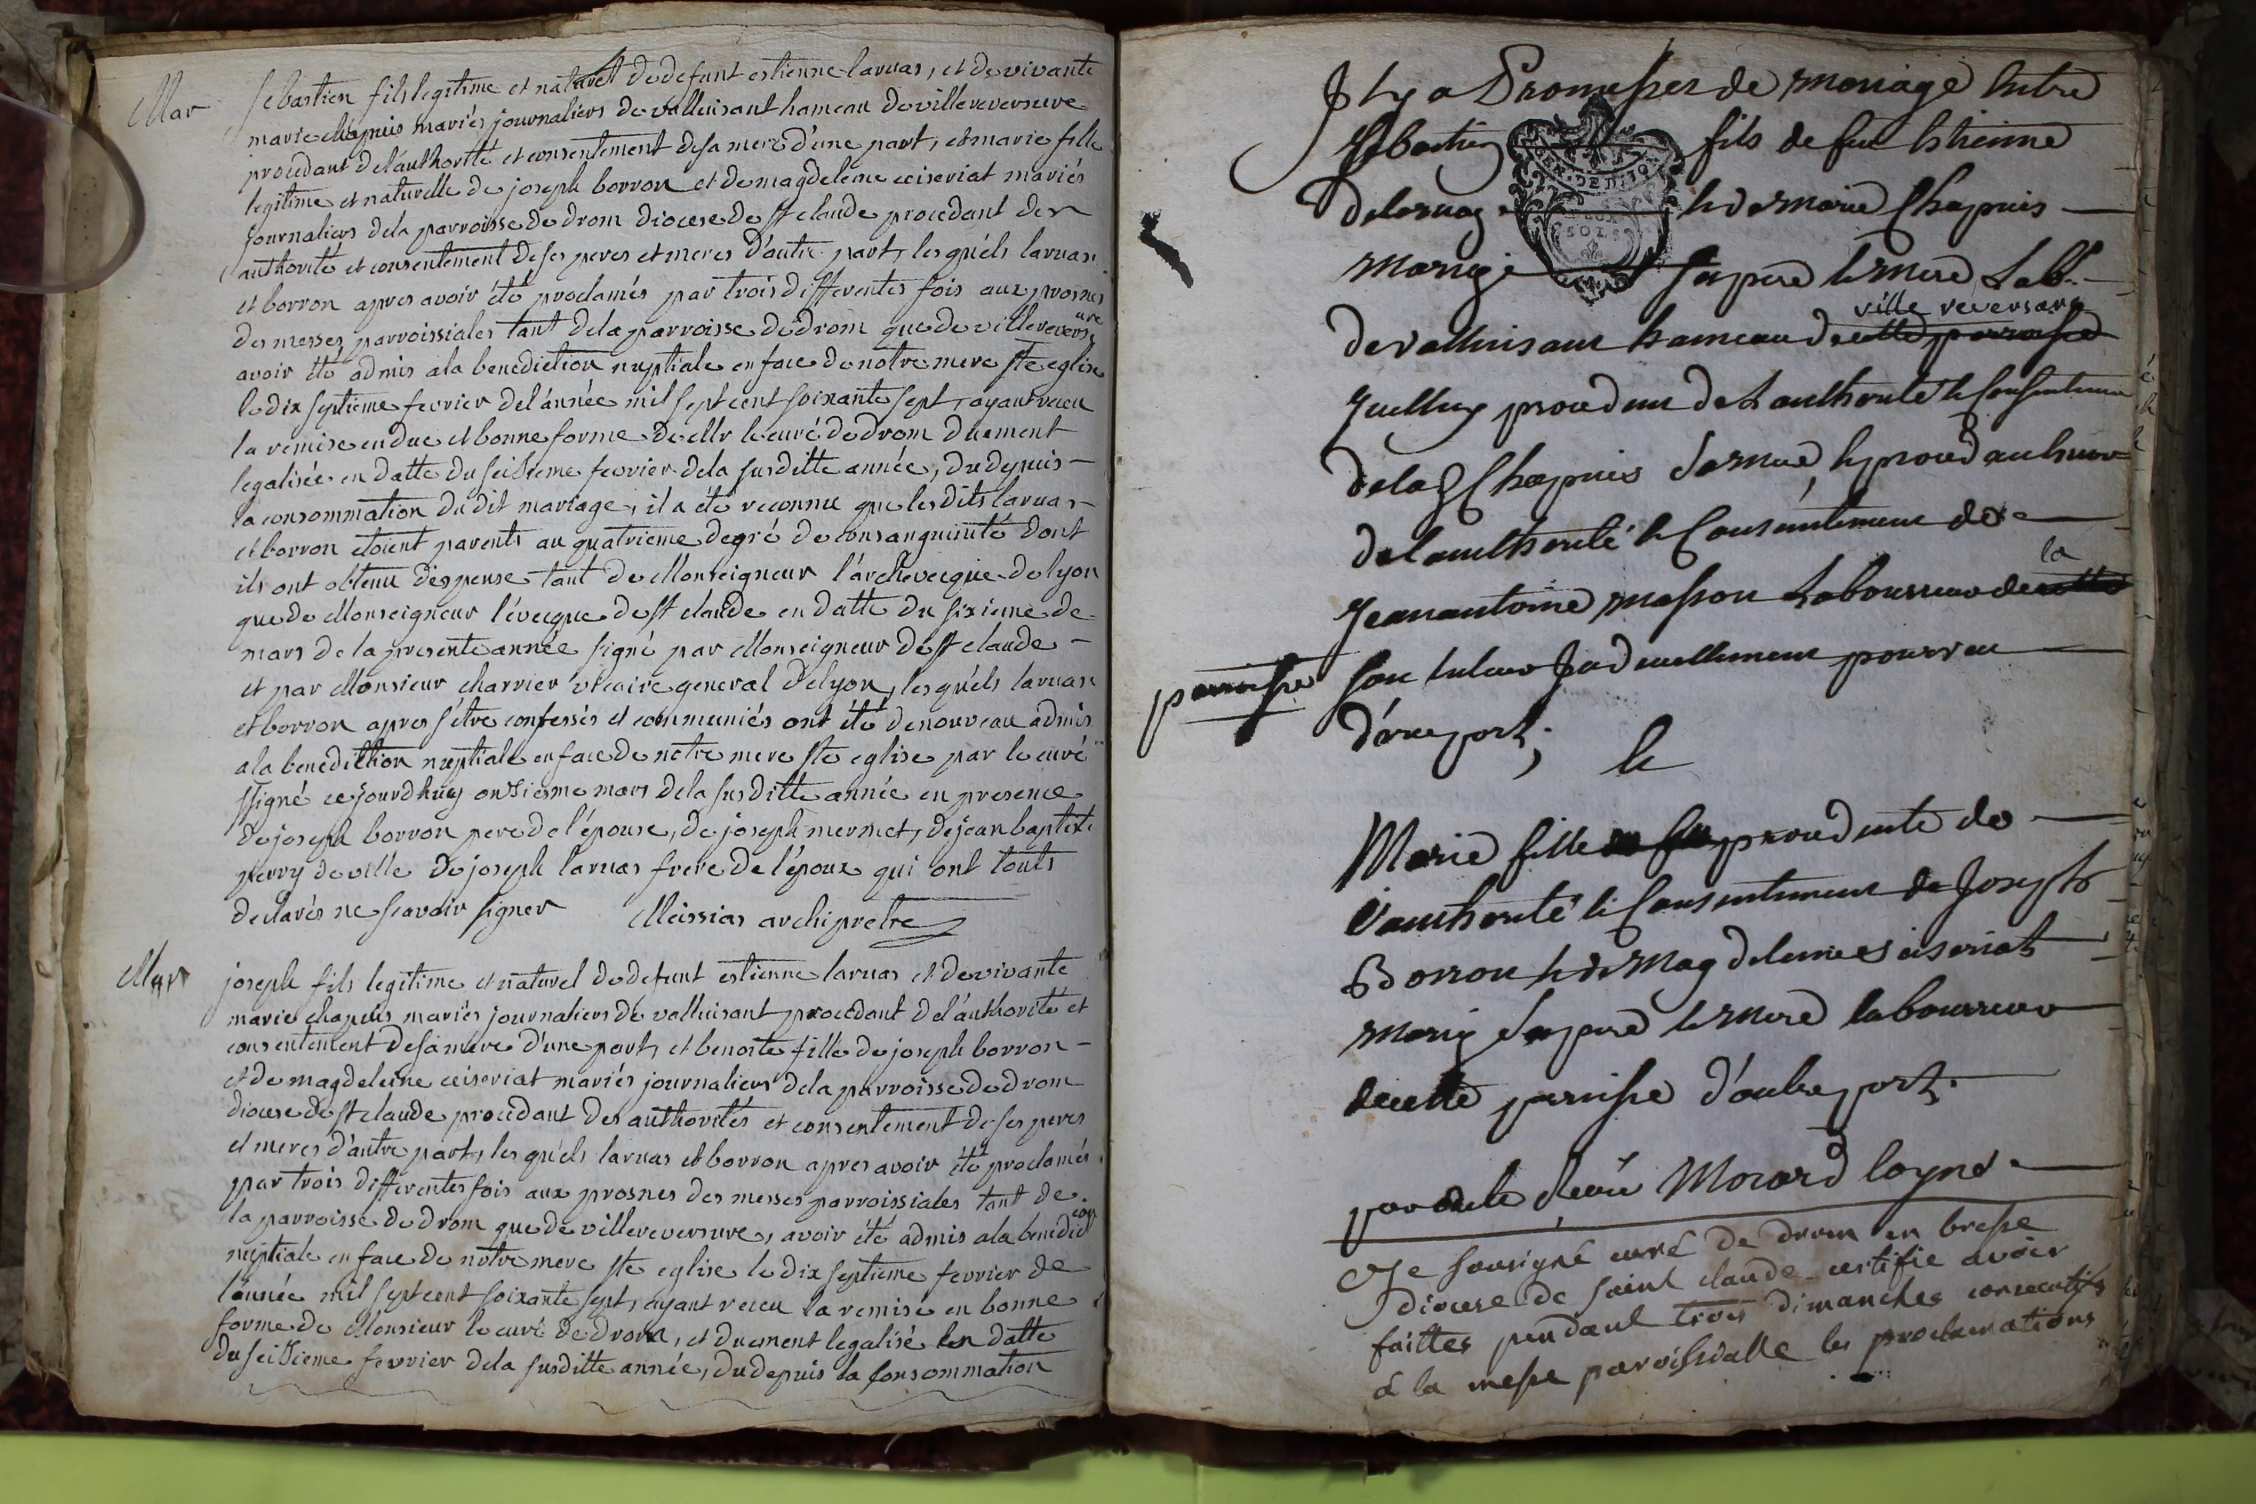 Mar
Sebastien fils legitime et naturel de defunt estienne laruas, et de vivante
marie chapuis mariés journaliers de valluisant hameau de villereversure
procedant de l'authorité et consentement de sa mere d'une part, et marie fille
legitime et naturelle de joseph borron et de magdeleine ceiseriat mariés
journaliers de la parroisse de drom diocese de st claude procedant des
authorités et consentement de ses peres et meres d'autre part, lesquels laruas
et borron apres avoir été proclamés par trois differentes fois aux prosnes
des messes parroissiales tant de la parroisse de drom que de villereversure
avoir été admis a la benediction nuptiale en face de notre mere ste eglise
le dix septieme fevrier de l'année mil sept cent soixante sept, ayant receu
la remise en due et bonne forme de Mr le curé de drom duement
legalisée en datte du seizieme fevrier de la susditte année, du depuis
la consommation du dit mariage, il a été reconnu que les dits laruas
et borron etoient parents au quatrieme degré de consanguinité dont
ils ont obtenu dispense tant de Monseigneur l'archeveque de lyon
que de Monseigneur l'éveque de st claude en datte du sixieme de
mars de la presente année signé par Monseigneur de st claude
et par Monsieur charrier vicaire general de lyon, lesquels laruas
et borron apres s'étre confessés et communiés ont été de nouveau admis
a la benediction nuptiale en face de notre mere ste eglise par le curé
ssigné ce jourdhuy onzieme mars de la susditte année en presence
de joseph borron pere de l'épouse, de joseph mermet, de jean baptiste
perry de ville de joseph laruas frere de l'époux qui ont touts
declarés ne scavoir signer Meissias archipretre
Mar
joseph fils legitime et naturel de defunt estienne laruas et de vivante
marie chapuis mariés journaliers de valluisant procedant de l'authorité et
consentement de sa mere d'une part, et benoite fille de joseph borron
et de magdeleine ceiseriat mariés journaliers de la parroisse de drom
diocese de st claude procedant des authorités et consentement de ses peres
et meres d'autre part, lesquels laruas et borron apres avoir été proclamés
par trois differentes fois aux prosnes des messes parroissiales tant de
la parroisse de drom que de villereversure, avoir été admis a la benediction
nuptiale en face de notre mere ste eglise le dix septieme fevrier de
l'année mil sept cent soixante sept, ayant receu la remise en bonne
forme de Monsieur le curé de drom, et duement legalisé en datte
du seizieme fevrier de la susditte année, du depuis la consommation
Il y a Promesses de mariage Entre
Sebastien fils de feu Estienne
delaruaz et de marie Chapuis
mariez ses pere et mere Lab.
de valluisant hameau de cette paroisse
ville reversure
Icelluy procedant de L'authorité et Consentement
de lad Chapuis sa mere, et procedant encore
de l'authorité et Consentement de
Jean antoine masson Laboureur de la
paroisse son tuteur Judiciellement pourveu
d'une part; Et
Marie fille procedente de
l'authorité et Consentement de Joseph
Borron et de Magdeleine Ceiseriat
mariez ses pere et mere laboureur
de cette paroisse d'autre part.
Morard
Je sousigné curé de drom en bresse
diocese de saint claude certifie avoir
faittes pendant trois dimanches consecutifs
a la messe paroissialle les proclamations